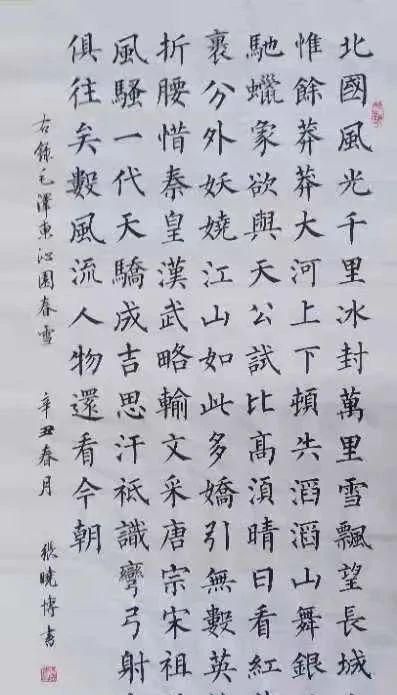 北國風光千里冰封萬里雪飄望長城
惟餘莽莽大河上下頓失滔滔山舞銀
馳蠟家欲與天公試比高湏晴日看紅
裹分外妖嬈江山如此多嬌引無數英
折腰惜秦皇漢武略輸文采唐宗宋祖
風騷一代天驕成吉思汗祗識彎弓射
俱往矣數風流人物還看今朝
右錄毛澤東沁園春雪 辛丑春月 張曉博書